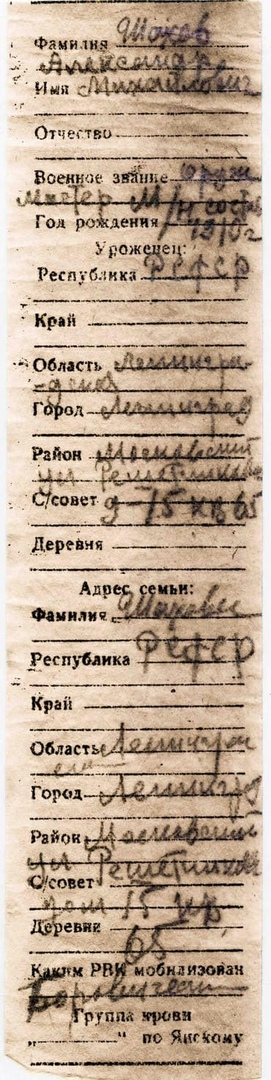 Фамилия Шахов
Александр
Имя Михайлович
Отчество
Военное звание оруж
мастер М/н сост
Год рождения 1910 г
Уроженец:
Республика РСФСР
Край
Область Ленингра-
-дская
Город Ленинград
Район Московский
ул Решетникова
С/совет д 15 кв 65
Деревня
Адрес семьи:
Фамилия
Республика РСФСР
Край
Область Ленинград
Город Ленинград
Район Московский
ул Решетникова
С/совет
дом 15 кв
Деревни
65
Каким РВК мобилизован
Группа крови
„ “ по Янскому